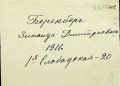 Беренберг
Зинаида Дмитриевна
1916
1ая Слободская - 20